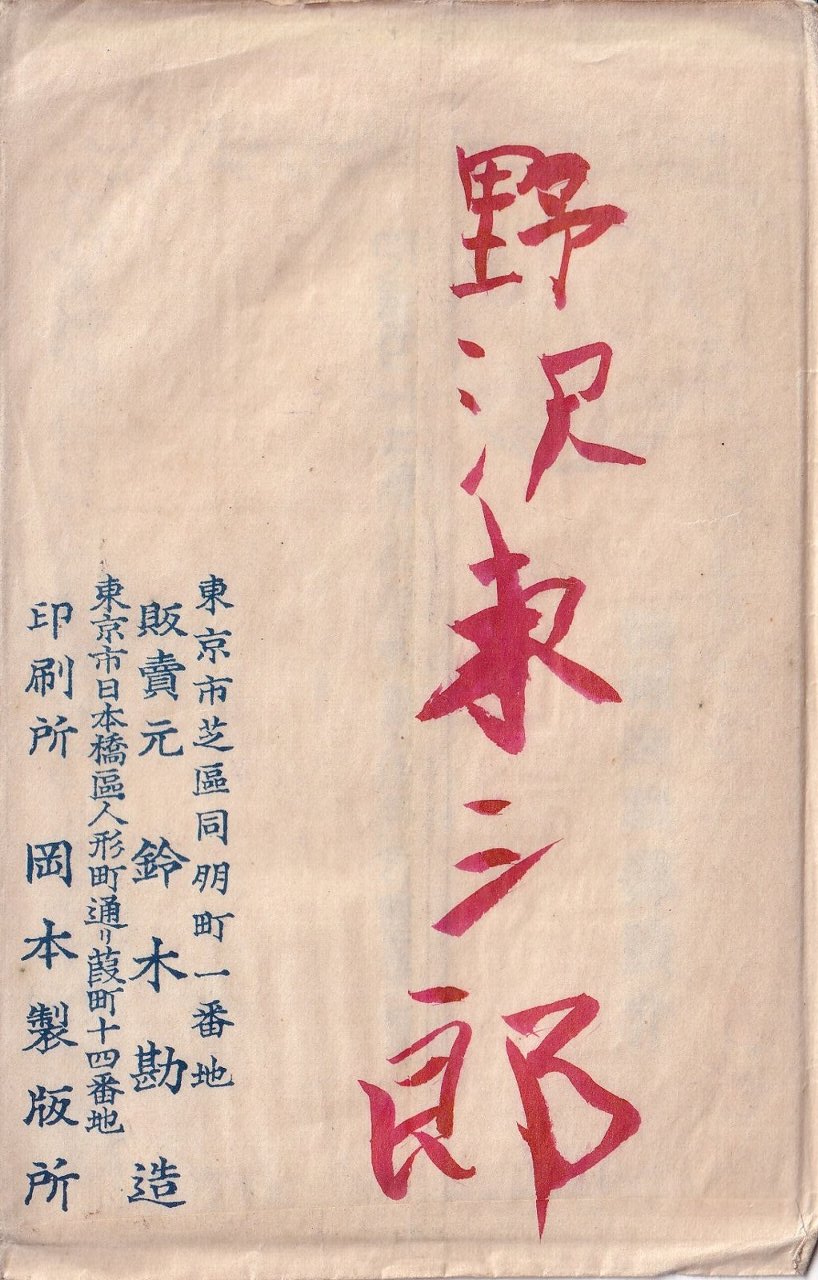 野沢東三郎
東京市芝區同朋町一番地
販賣元 鈴木勘造
東京市日本橋區人形町通リ葭町十四番地
印刷所 岡本製版所